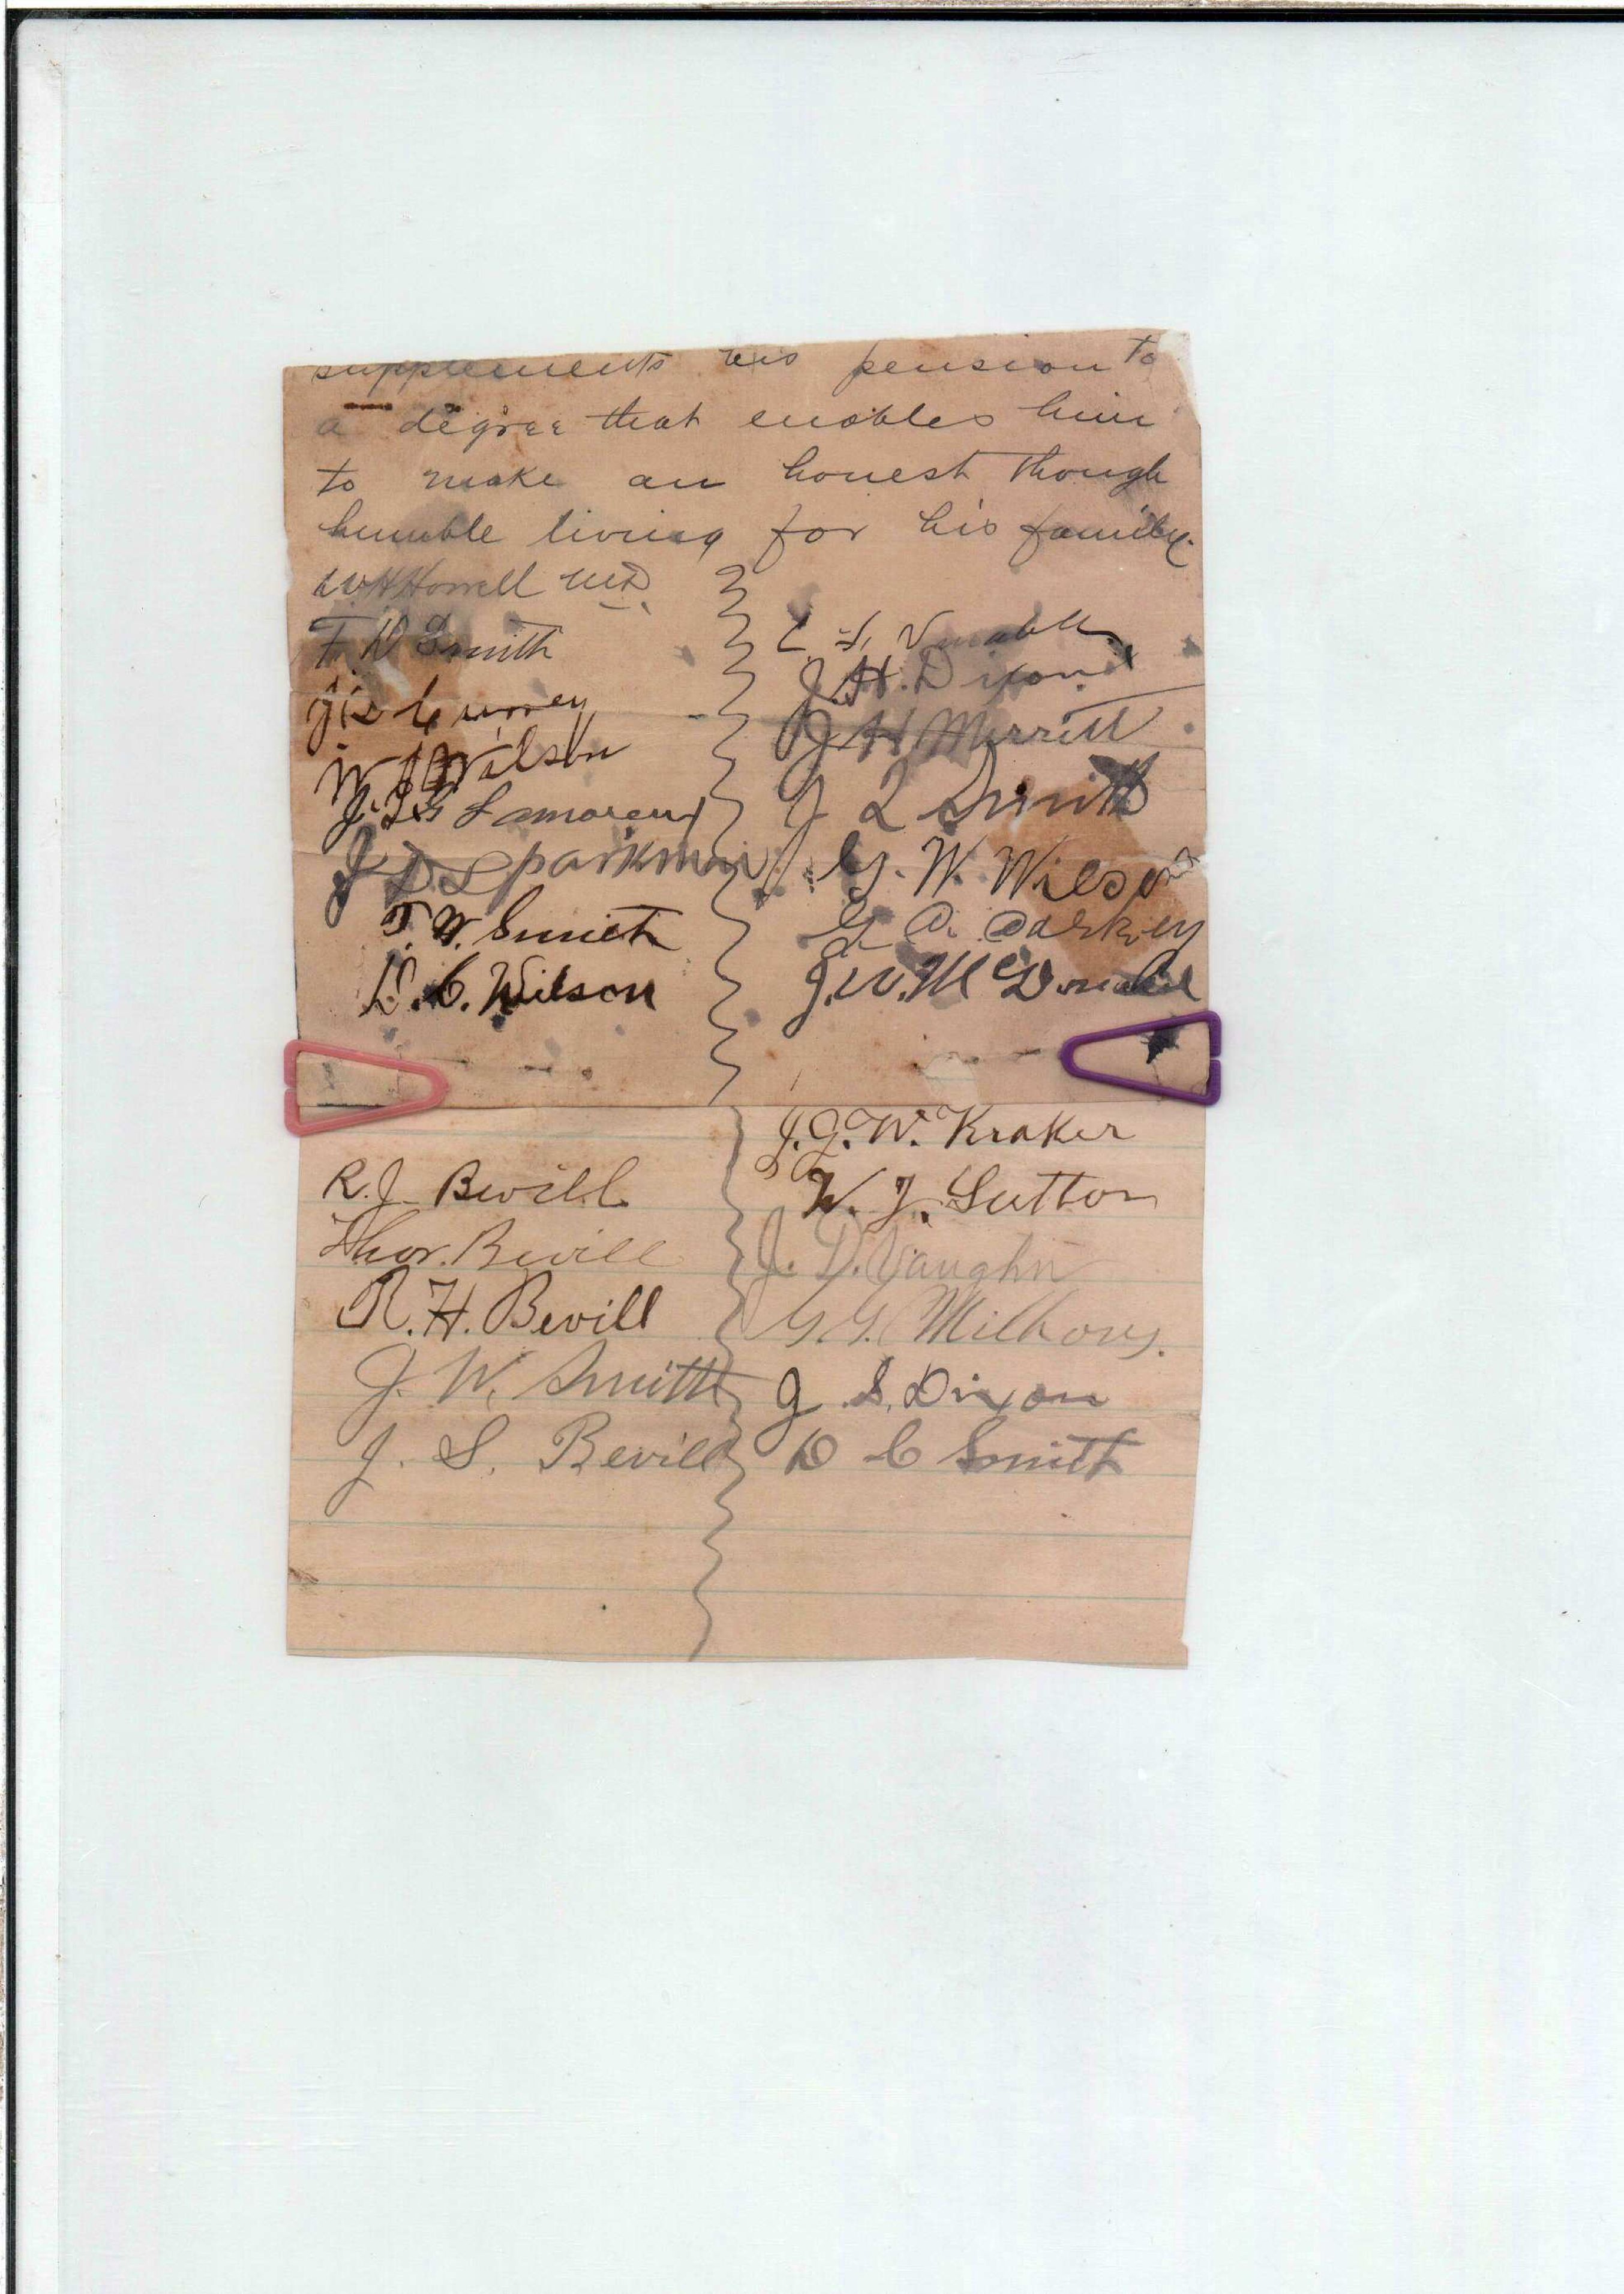 supplements his pension to
a degree that enables him
to make an honest though
humble living for his family.
W H Howell M.D.
F. D Smith
Currey
W Wilson
J. Lamoreux
J D Sparkman
T. W. Smith
D. C. Wilson
Venable
J. H. Dixon
J H Merritt
J L Smith
G. W. Wilson
G. A. Darkey
J. W. McDonald
R. J. Bevill
Thos. Bevill
R. H. Bevill
J. W. Smith
J. S. Bevill
J. G. W. Kraker
W. J. Sutton
J. D. Vaughn
G. G. Milhous.
J S. Dixon
D C Smith